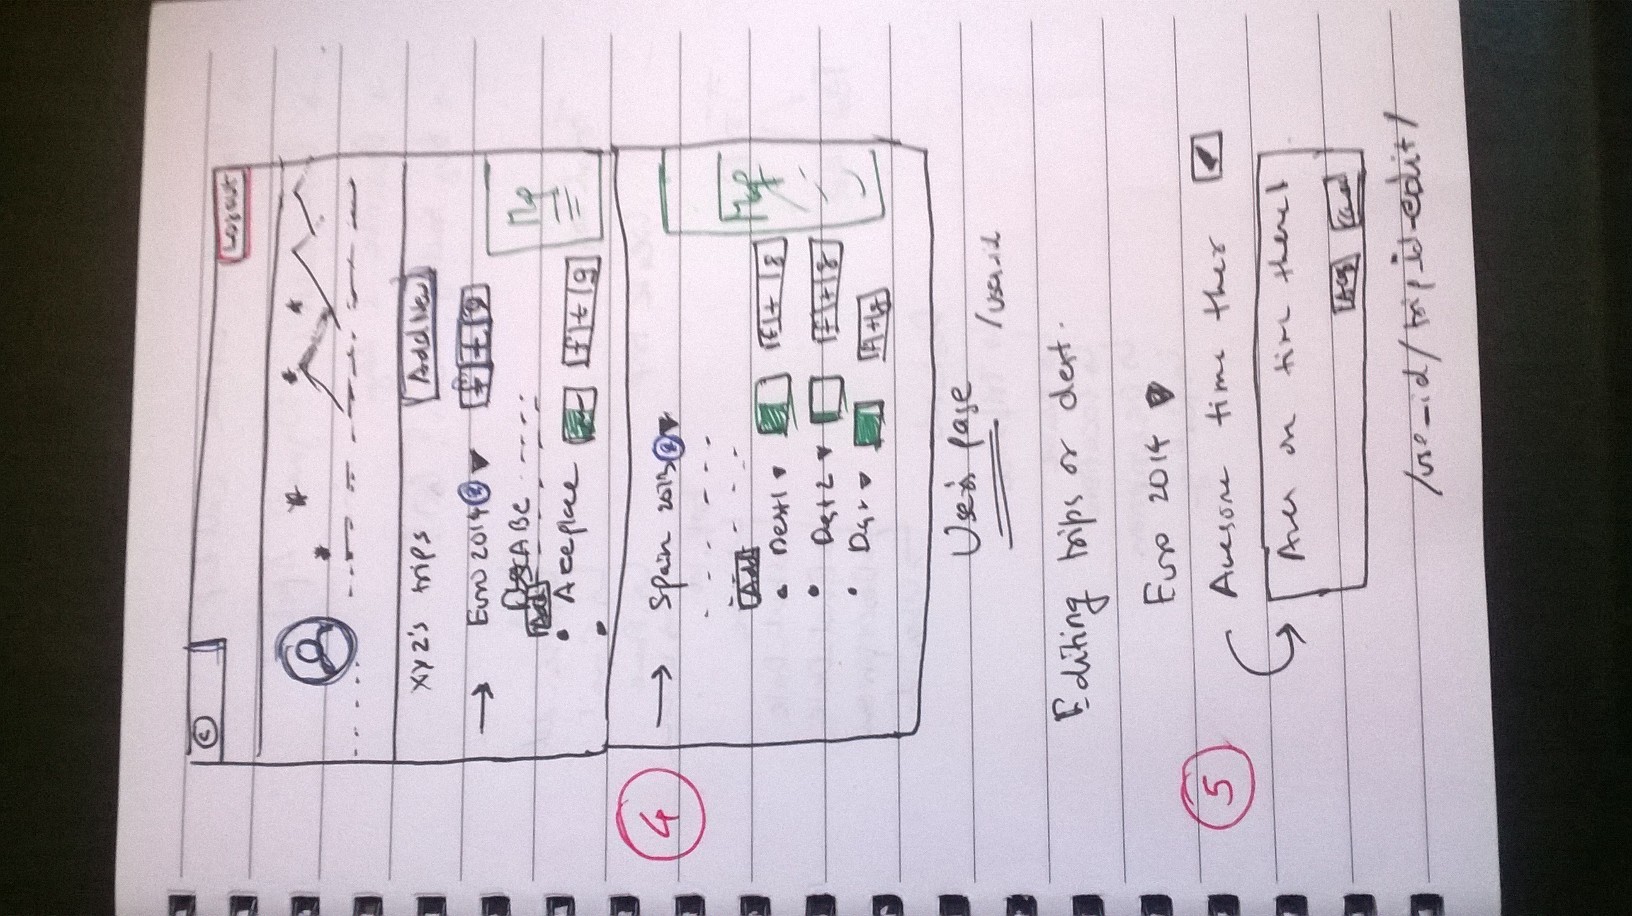 Logout
xyz's trips Add New
→ Euro 2014 f t g
Map
Add
• A ceplace f t g
④
→ Spain 2013
Map
Add
• Dest1 f t g
• Dest2 f t g
•
User's Page /userid
Editing trips or dest.
Euro 2014
⑤
Awesome time ther
Awes on time there!
/use-id/trip_id-edit/